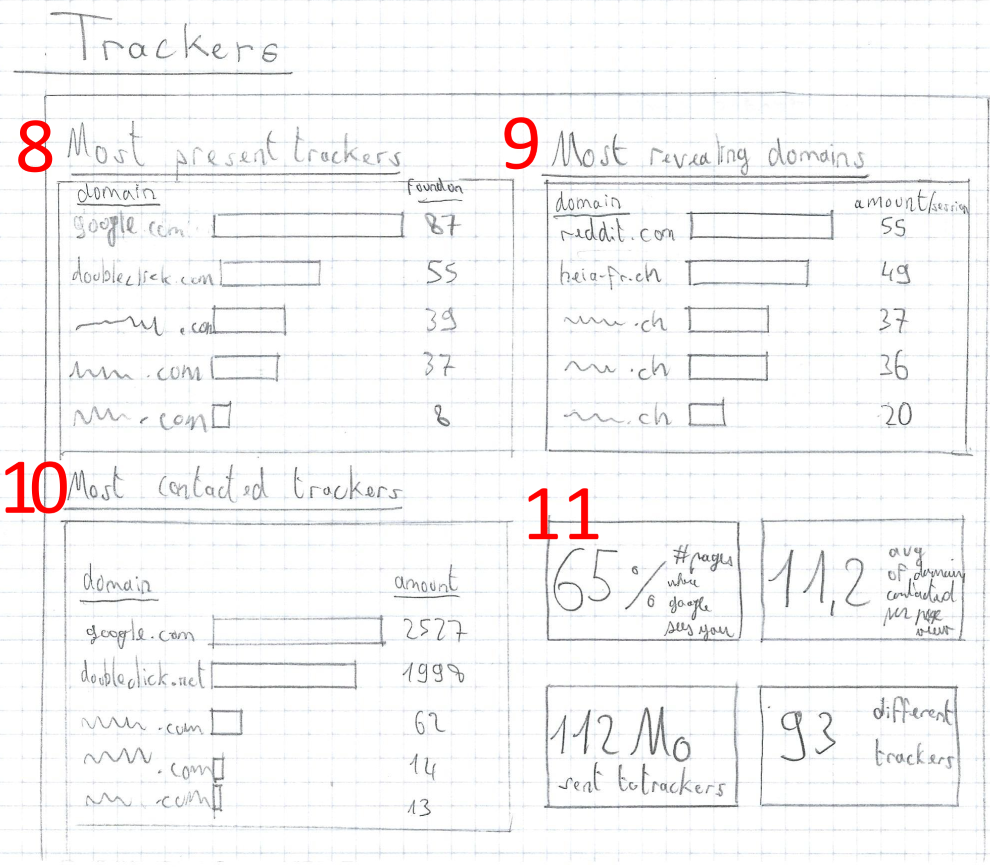 Trackers
8 Most present trackers
domain found on
google.com 87
doubleclick.com 55
.com 39
.com 37
.com 8
9 Most revealing domains
domain amount/session
reddit.com 55
heia-fr.ch 49
.ch 37
.ch 36
.ch 20
10 Most contacted trackers
domain amount
google.com 2527
doubleclick.net 1998
.com 62
.com 14
.com 13
11
65 % #pages
where
google
sees you
11,2 avg
of domain
contacted
per page
view
112 Mo
sent to trackers
93 different
trackers